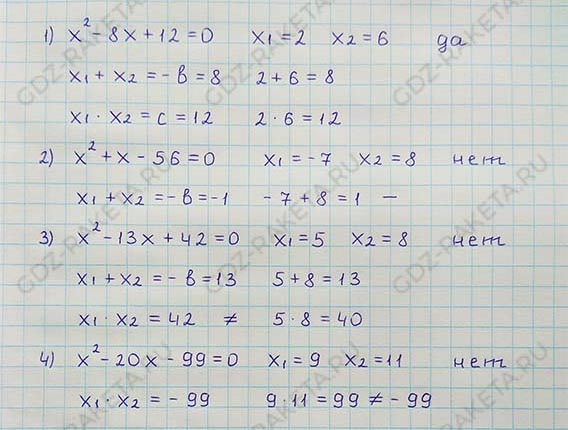 1) x² - 8x + 12 = 0 x₁ = 2 x₂ = 6 да
x₁ + x₂ = -в = 8 2 + 6 = 8
x₁ · x₂ = c = 12 2 · 6 = 12
2) x² + x - 56 = 0 x₁ = -7 x₂ = 8 нет
x₁ + x₂ = -в = -1 -7 + 8 = 1 —
3) x² - 13x + 42 = 0 x₁ = 5 x₂ = 8 нет
x₁ + x₂ = -в = 13 5 + 8 = 13
x₁ · x₂ = 42 ≠ 5 · 8 = 40
4) x² - 20x - 99 = 0 x₁ = 9 x₂ = 11 нет
x₁ · x₂ = -99 9 · 11 = 99 ≠ -99
GDZ-RAKETA.RU